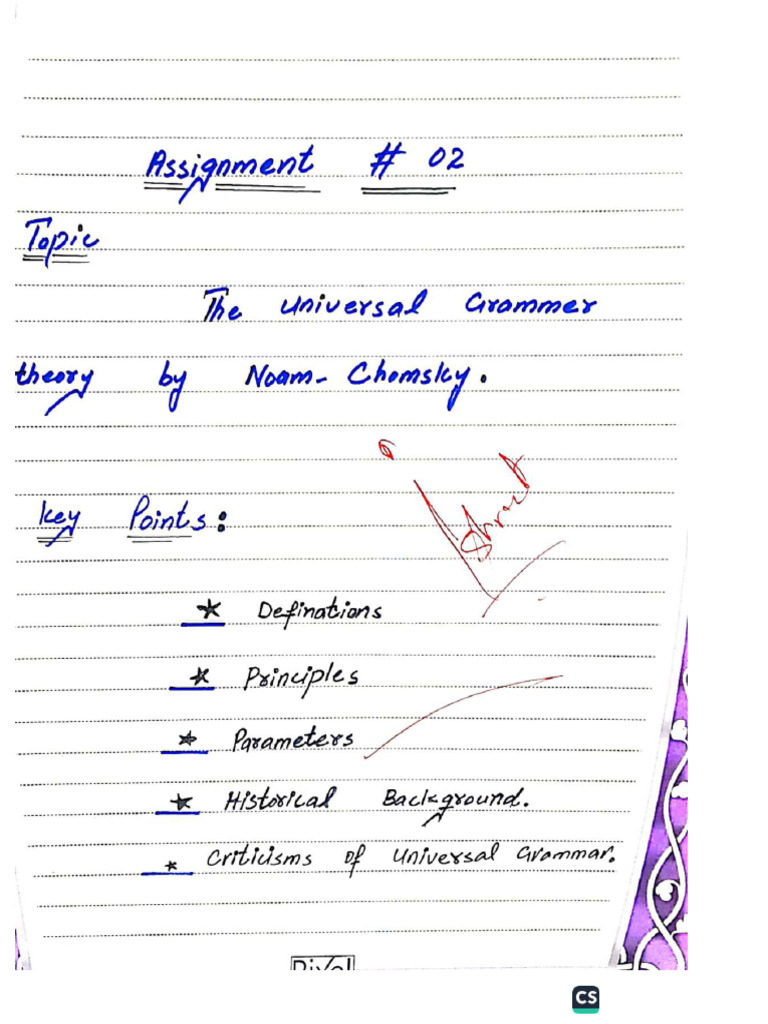 Assignment # 02
Topic
The Universal Grammer
theory by Noam- Chomsky.
Key Points:
* Definations
* Principles
* Parameters
* Historical Background.
* Criticisms of Universal Grammar.
CS